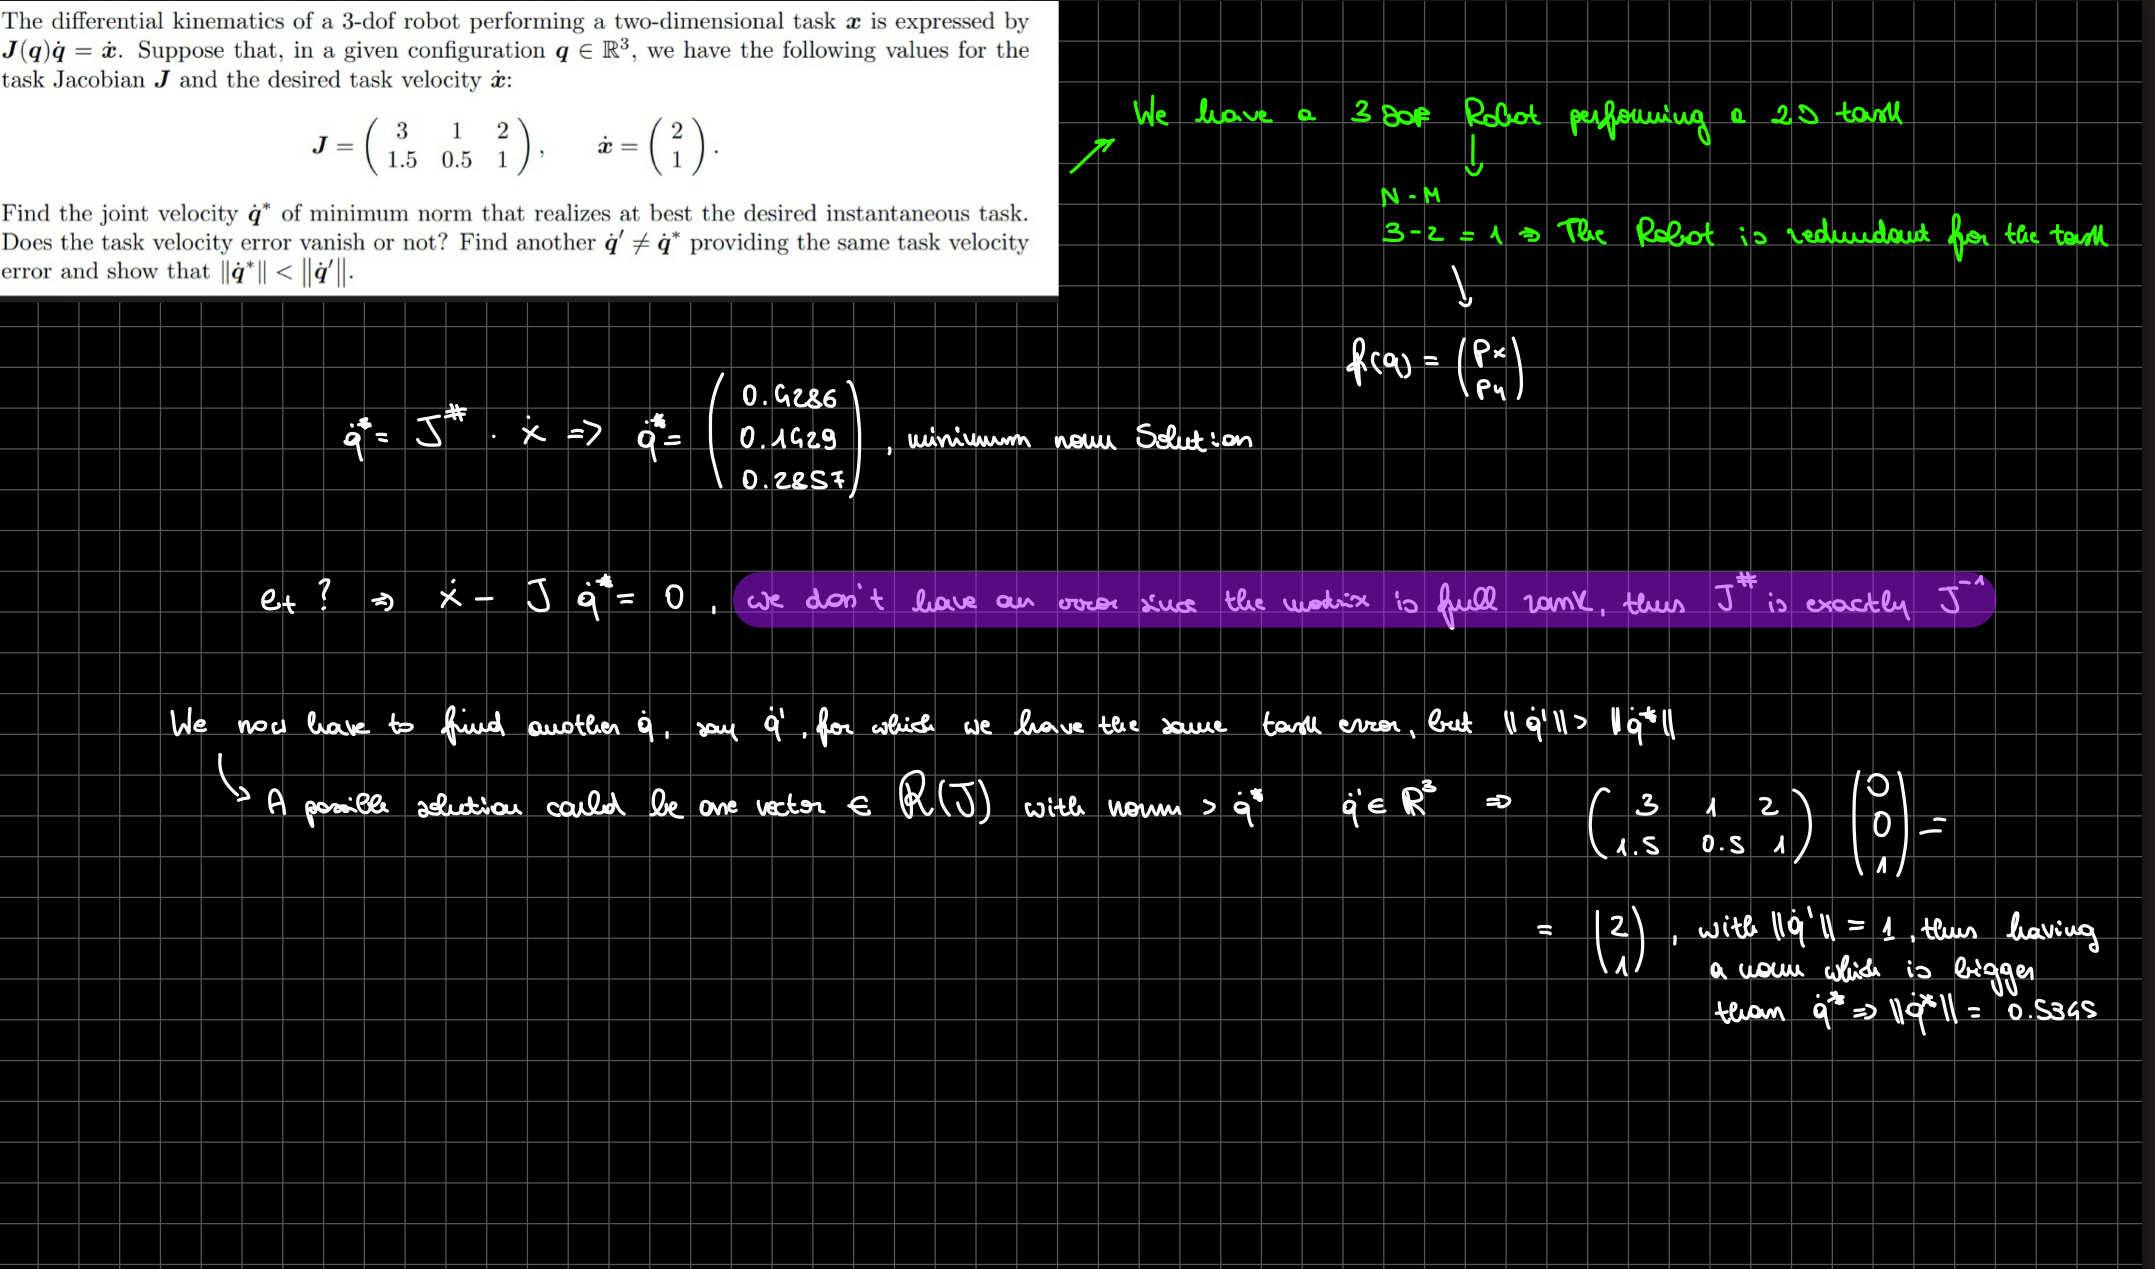 The differential kinematics of a 3-dof robot performing a two-dimensional task x is expressed by
J(q)q̇ = ẋ. Suppose that, in a given configuration q ∈ ℝ³, we have the following values for the
task Jacobian J and the desired task velocity ẋ:
J = ( 3 1 2
1.5 0.5 1 ), ẋ = ( 2
1 ).
Find the joint velocity q̇* of minimum norm that realizes at best the desired instantaneous task.
Does the task velocity error vanish or not? Find another q̇′ ≠ q̇* providing the same task velocity
error and show that ‖q̇*‖ < ‖q̇′‖.
We have a 3 DOF Robot performing a 2D task
N - M
3 - 2 = 1 => The Robot is redundant for the task
f(q) = ( Px
Py )
q̇* = J# · ẋ => q̇* = ( 0.4286
0.1429
0.2857 ), minimum norm Solution
et ? => ẋ - J q̇* = 0, we don't have an error since the matrix is full rank, thus J# is exactly J⁻¹
We now have to find another q̇, say q̇', for which we have the same task error, but ||q̇'|| > ||q̇*||
A possible solution could be one vector ∈ R(J) with norm > q̇* q̇' ∈ R³ => ( 3 1 2
1.5 0.5 1 ) ( 0
0
1 ) =
= ( 2
1 ), with ||q̇'|| = 1, thus having
a norm which is bigger
than q̇* => ||q̇*|| = 0.5345